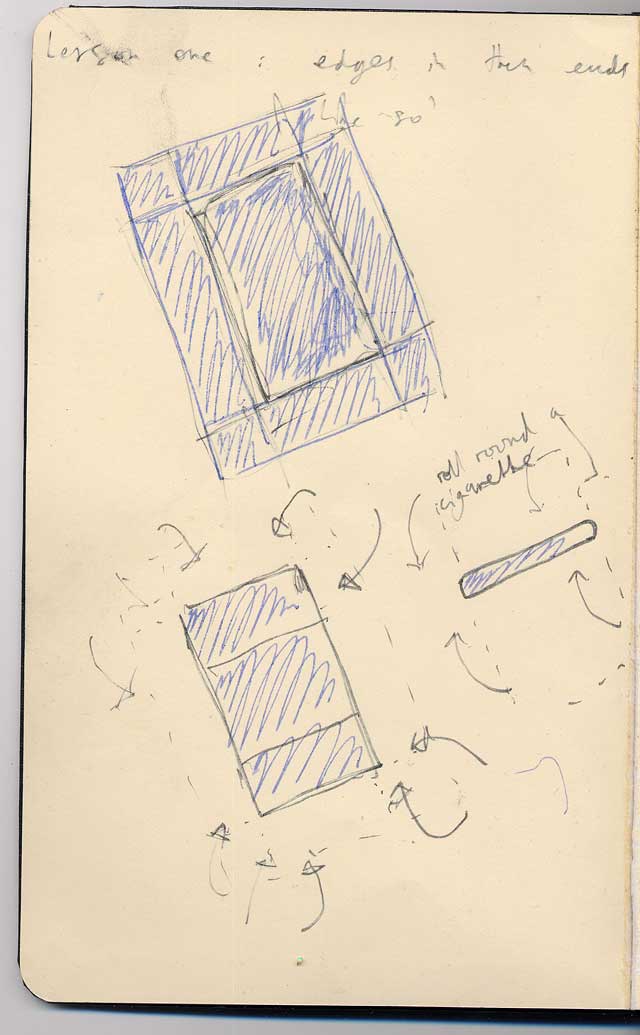 Lesson one : edges in then ends
like so'
roll round a
cigarette